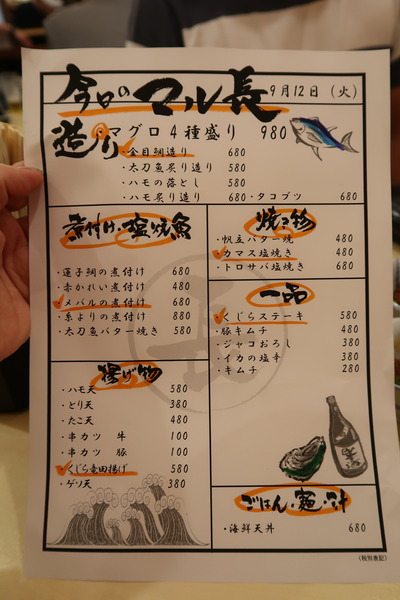 今日のマル長 9月12日（火）
造り
・マグロ4種盛り 980
・金目鯛造り 680
・太刀魚炙り造り 580
・ハモの落とし 580
・ハモ炙り造り 680 ・タコブツ 680
煮付け・塩焼魚
・蓮子鯛の煮付け 680
・赤かれい煮付け 480
・メバルの煮付け 680
・糸よりの煮付け 880
・太刀魚バター焼き 580
揚げ物
・ハモ天 580
・とり天 380
・たこ天 480
・串カツ 牛 100
・串カツ 豚 100
・くじら竜田揚げ 580
・ゲソ天 380
焼き物
・帆立バター焼 480
・カマス塩焼き 480
・トロサバ塩焼き 680
一品
・くじらステーキ 580
・豚キムチ 480
・ジャコおろし 380
・イカの塩辛 380
・キムチ 280
ごはん・麺・汁
・海鮮天丼 680
（税別表記）